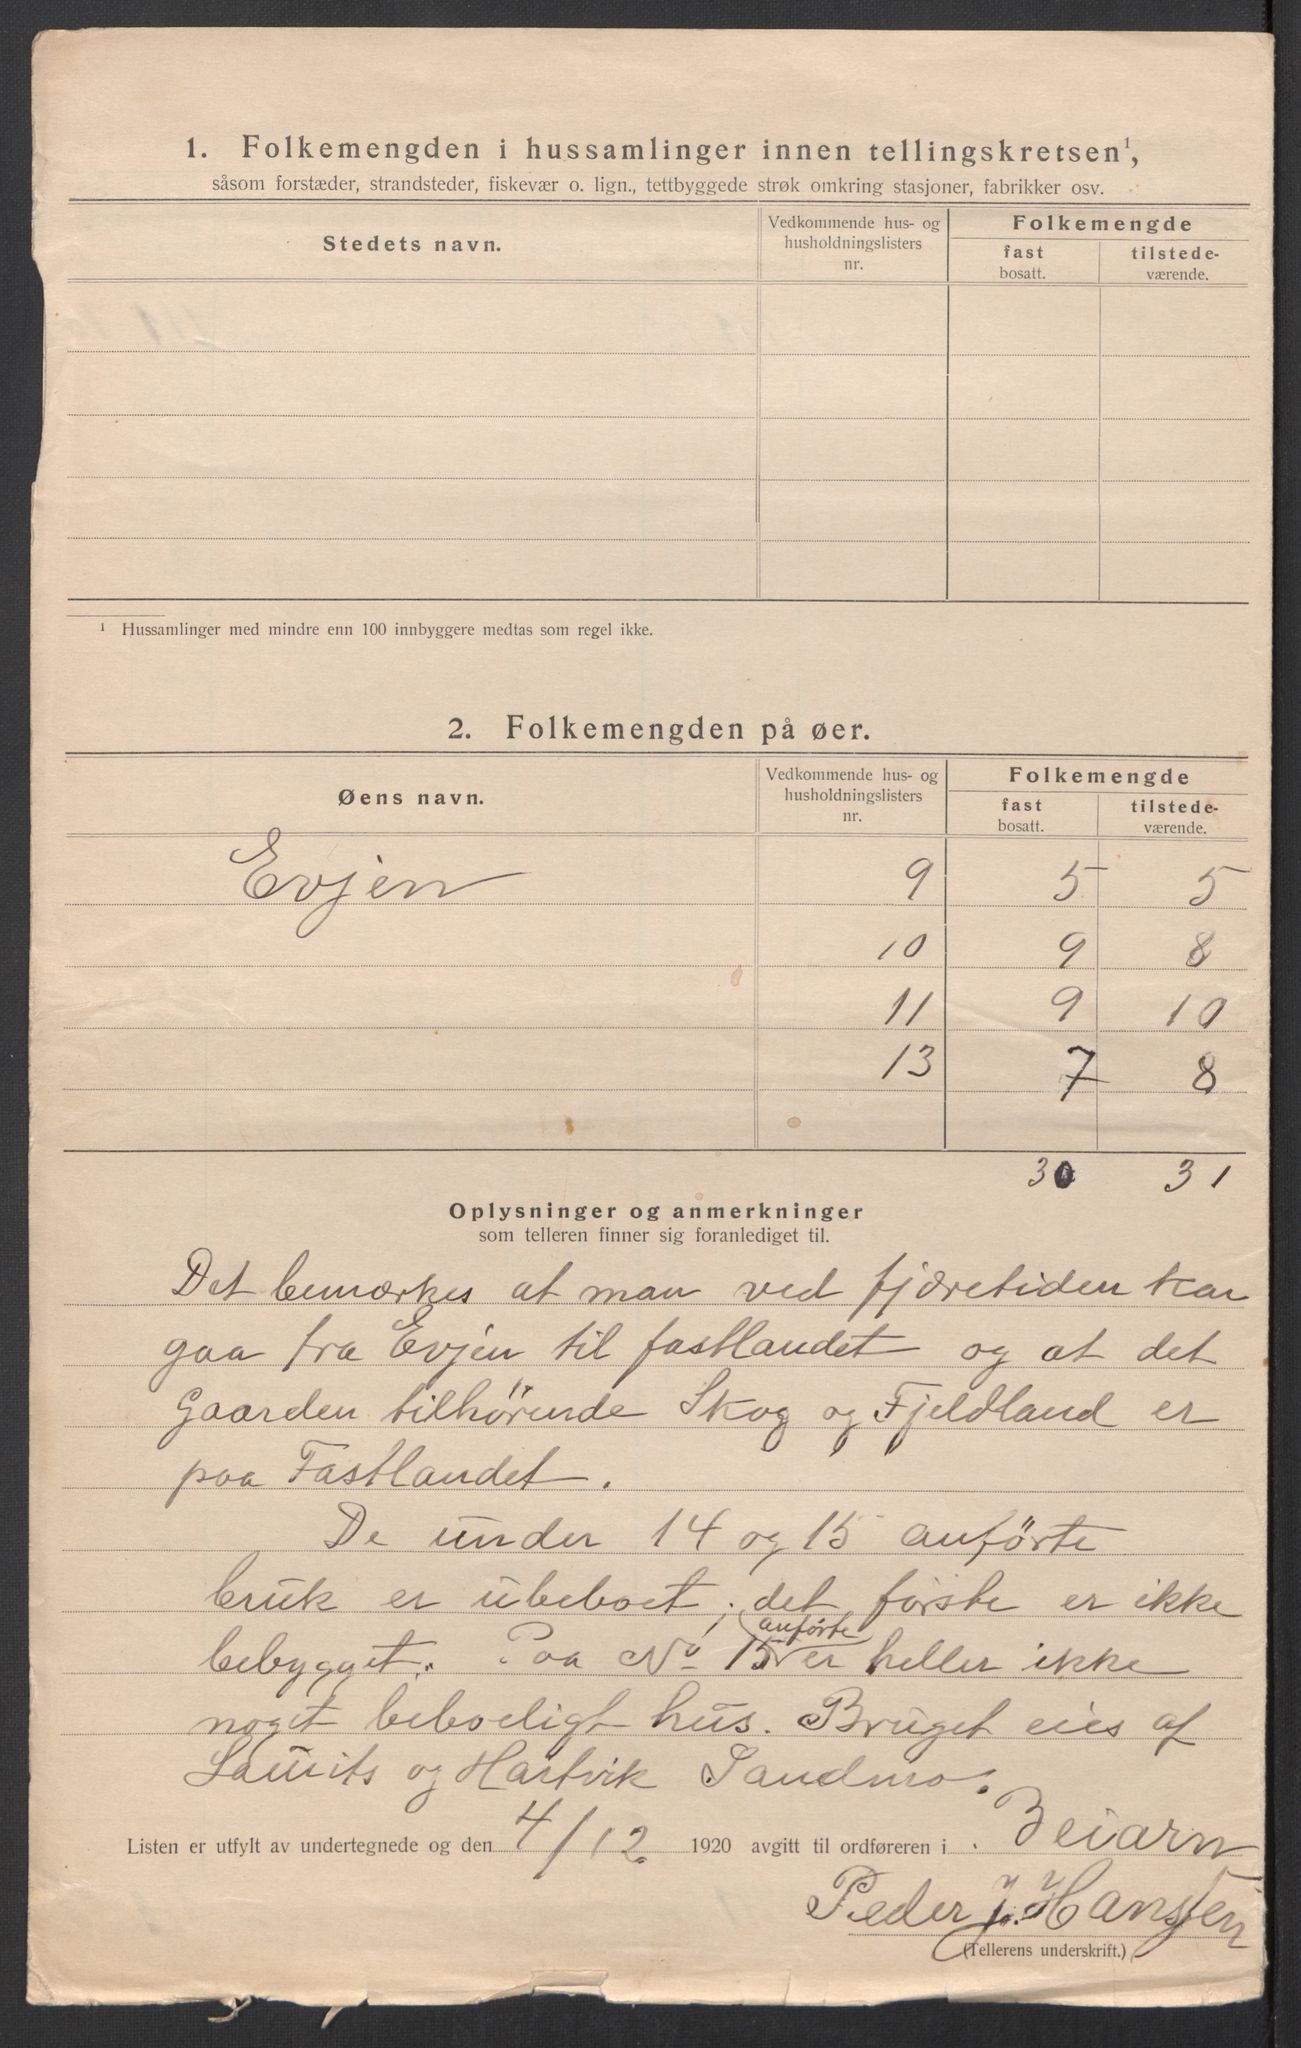 1. Folkemengden i hussamlinger innen tellingskretsen¹,
såsom forstæder, strandsteder, fiskevær o. lign., tettbyggede strøk omkring stasjoner, fabrikker osv.
Stedets navn. Vedkommende hus- og husholdningslisters nr. Folkemengde
fast bosatt. tilstede-værende.
¹ Hussamlinger med mindre enn 100 innbyggere medtas som regel ikke.
2. Folkemengden på øer.
Øens navn. Vedkommende hus- og husholdningslisters nr. Folkemengde
fast bosatt. tilstede-værende.
Evjen 9 5 5
10 9 8
11 9 10
13 7 8
30 31
Oplysninger og anmerkninger
som telleren finner sig foranlediget til.
Det bemærkes at man ved fjæretiden kan
gaa fra Evjen til fastlandet og at det
Gaarden tilhörende Skog og Fjeldland er
paa Fastlandet.
De under 14 og 15 anförte
bruk er ubeboet, det første er ikke
bebygget. Paa No 15 anførte er heller ikke
noget beboeligt hus. Bruget eies af
Laurits og Hartvik Sandmo.
Listen er utfylt av undertegnede og den 4/12 1920 avgitt til ordføreren i Beiarn
Peder J. Hanssen
(Tellerens underskrift.)